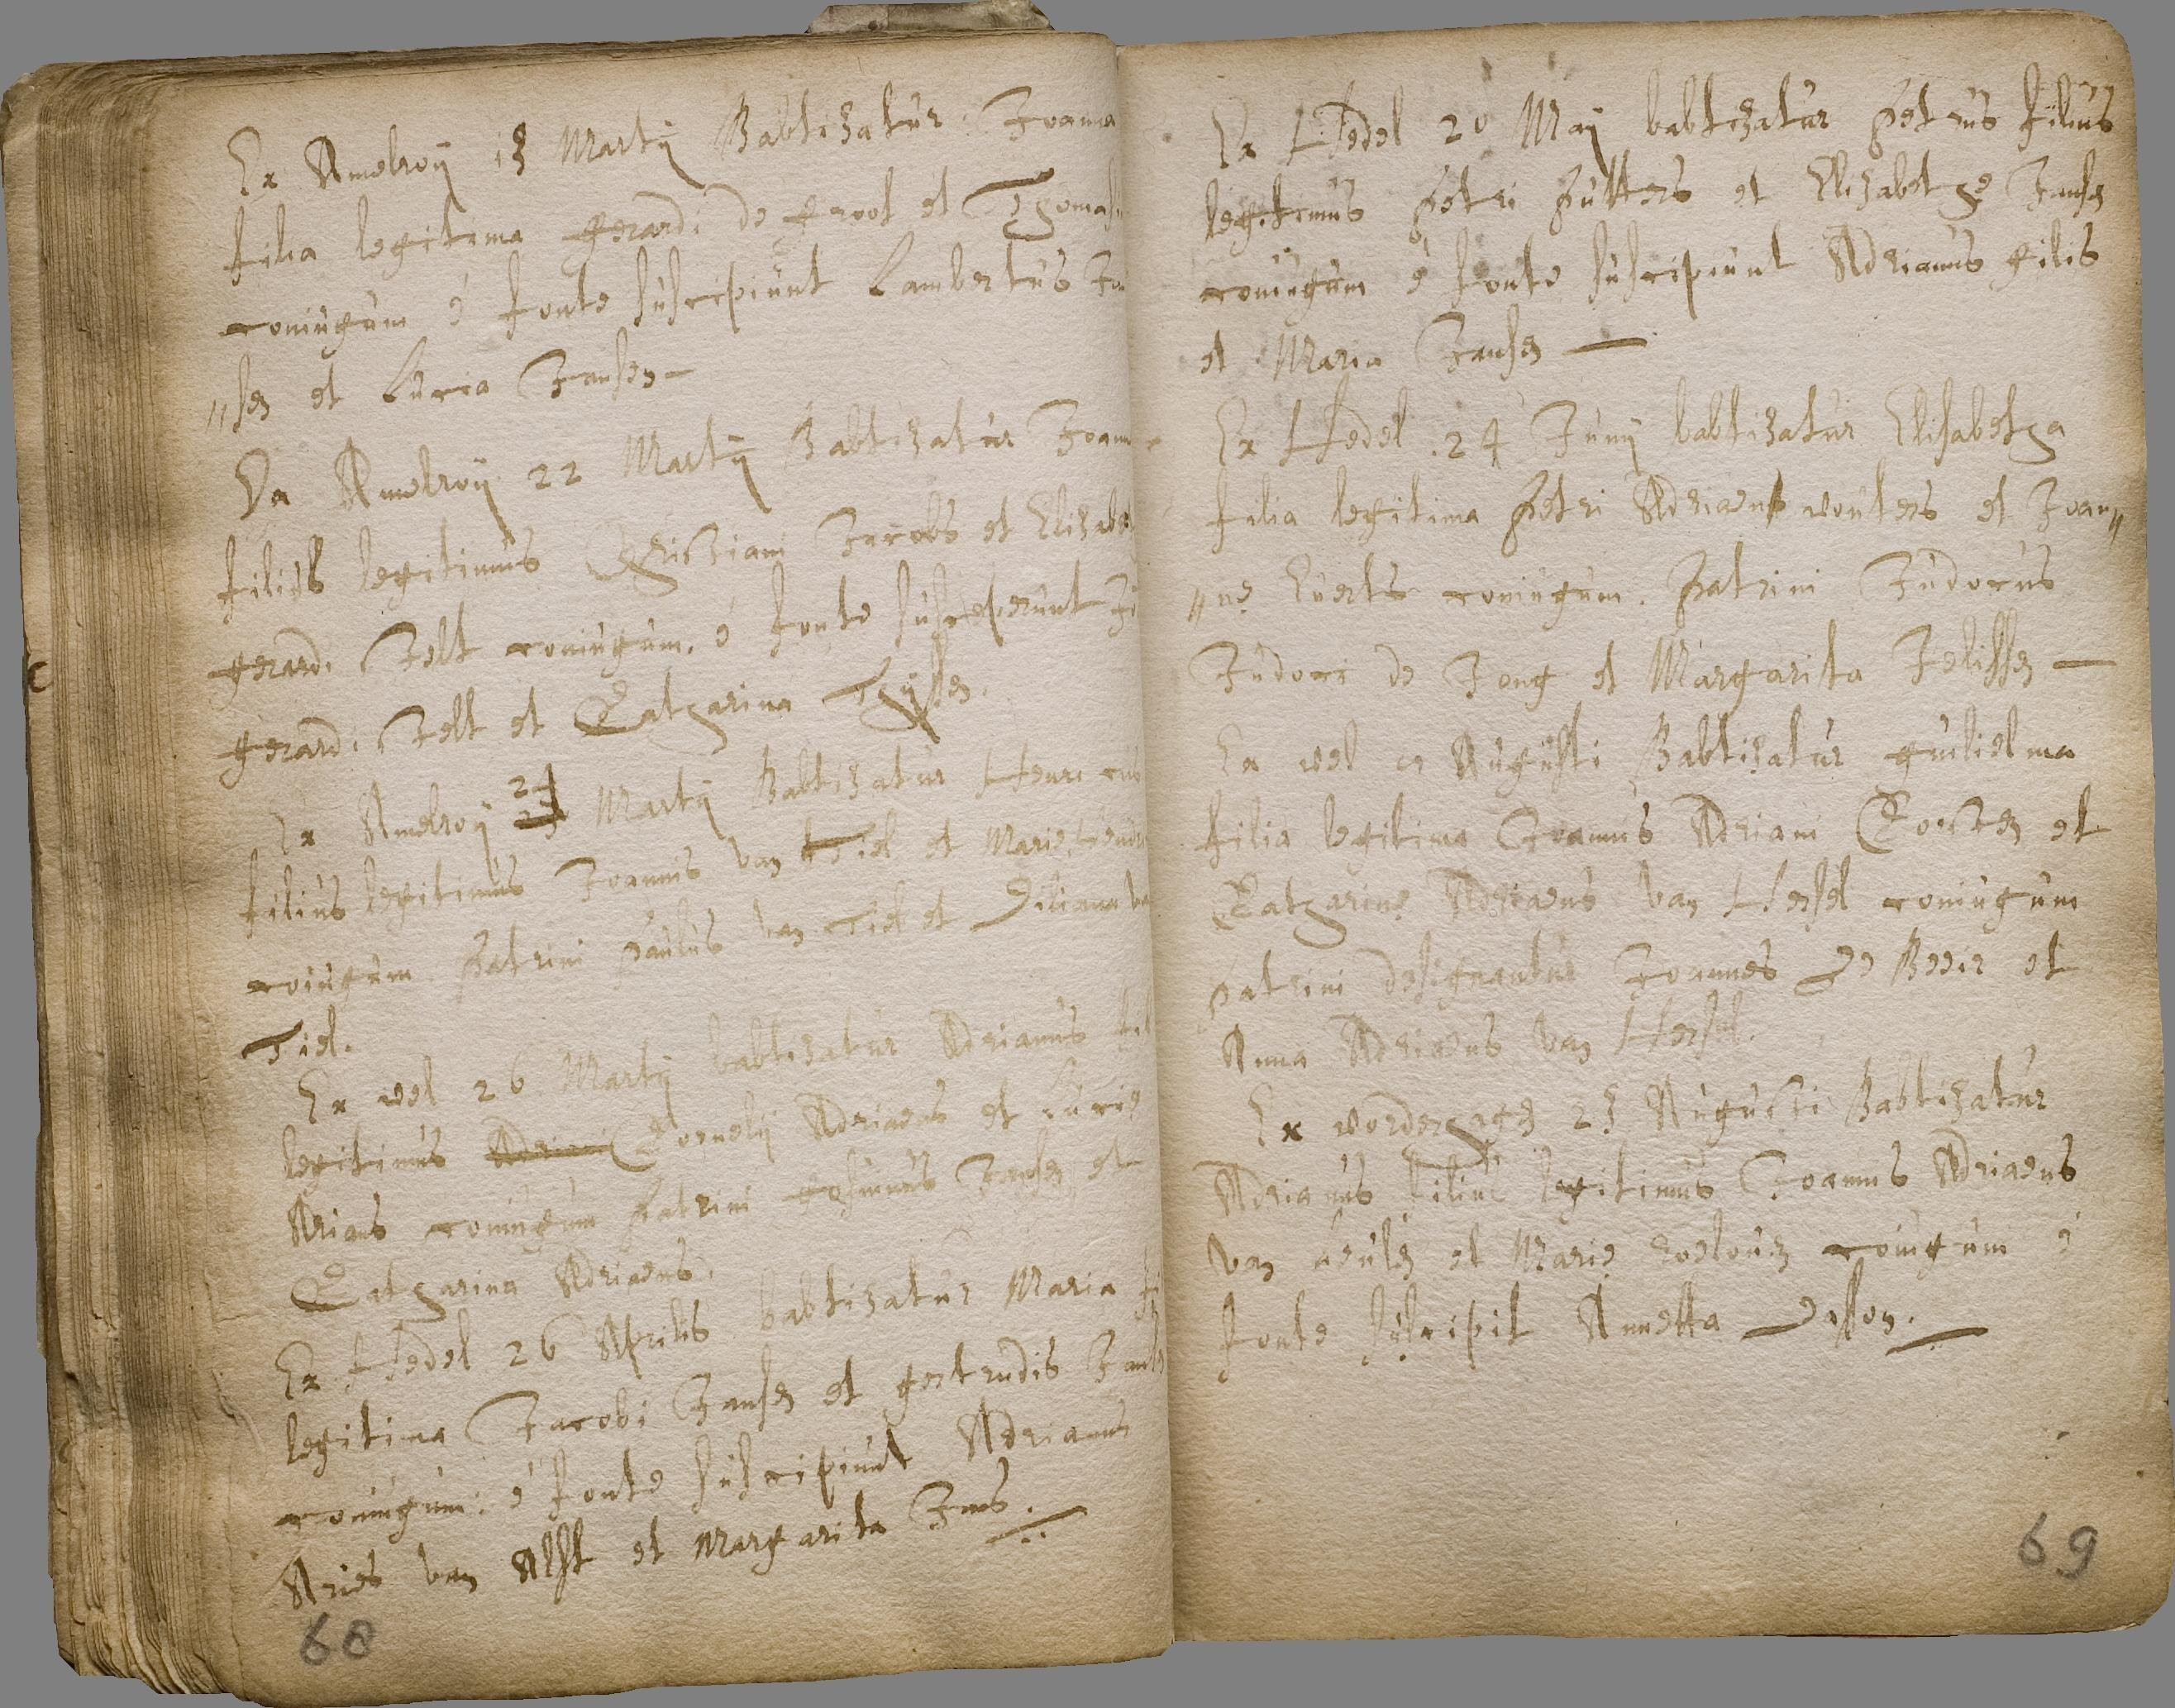 Ex Amelroÿ 13 Martÿ Babtizatur Joanna
filia legitima Gerardi de Groot et Thomas
coniugum é fonte suscipiunt Lambertus Jan
„sen et Lucia Jansen
Ex Amelroÿ 22 Martÿ Babtizatur Joann
filius legitimus Christiani Jacobs et Elizabe
Gerardi Telt coniugum. é fonte susceperunt
Gerardi Telt et Catharina Thÿssen.
Ex Amelroÿ 24 Martÿ Babtizatur Henricus
filius legitimus Joannis van Tiel et Marie Hendr
coiugum Patrini Paulus van Tiel et Jiliana va
Tiel.
Ex wel 26 Martÿ babtizatur Adrianus fil
legitimus Cornelÿ Adriaens et Lucie
Arians coniugum Patrini Gosuinus Jansen et
Catharina Adriaens.
Ex Hedel 26 Aprilis babtizatur Maria fi
legitima Jacobi Jansen et gertrudis Janse
coniugum: é fonte suscipiunt Adrianus
Aries van Alst et Margarita Jans.
60
Ex Hedel 20 Maÿ babtizatur Petrus filius
legitimus Petri Putters et Elizabethe Jansen
coniugum é fonte suscipiunt Adrianus Gilis
et Maria Jansen
Ex Hedel 24 Junÿ babtizatur Elisabetha
filia legitima Petri Adriaens wouters et Joan„
„ne Euerts coniugum. Patrini Judocus
Judoci de Jong et Margarita Jelissen
Ex wel Augusti Babtizatur guilielma
filia legitima Joannis Adriani Corsten et
Catharine Adriaens van Hersel coniugum
patrini designantur Joannes De Beer et
Anna Adriaens van Hersel.
Ex wordragen 23 Augusti Babtizatur
Adrianus filius legitimus Joannis Adriaens
van et Marie coiugum é
fonte suscipit Annetta
69